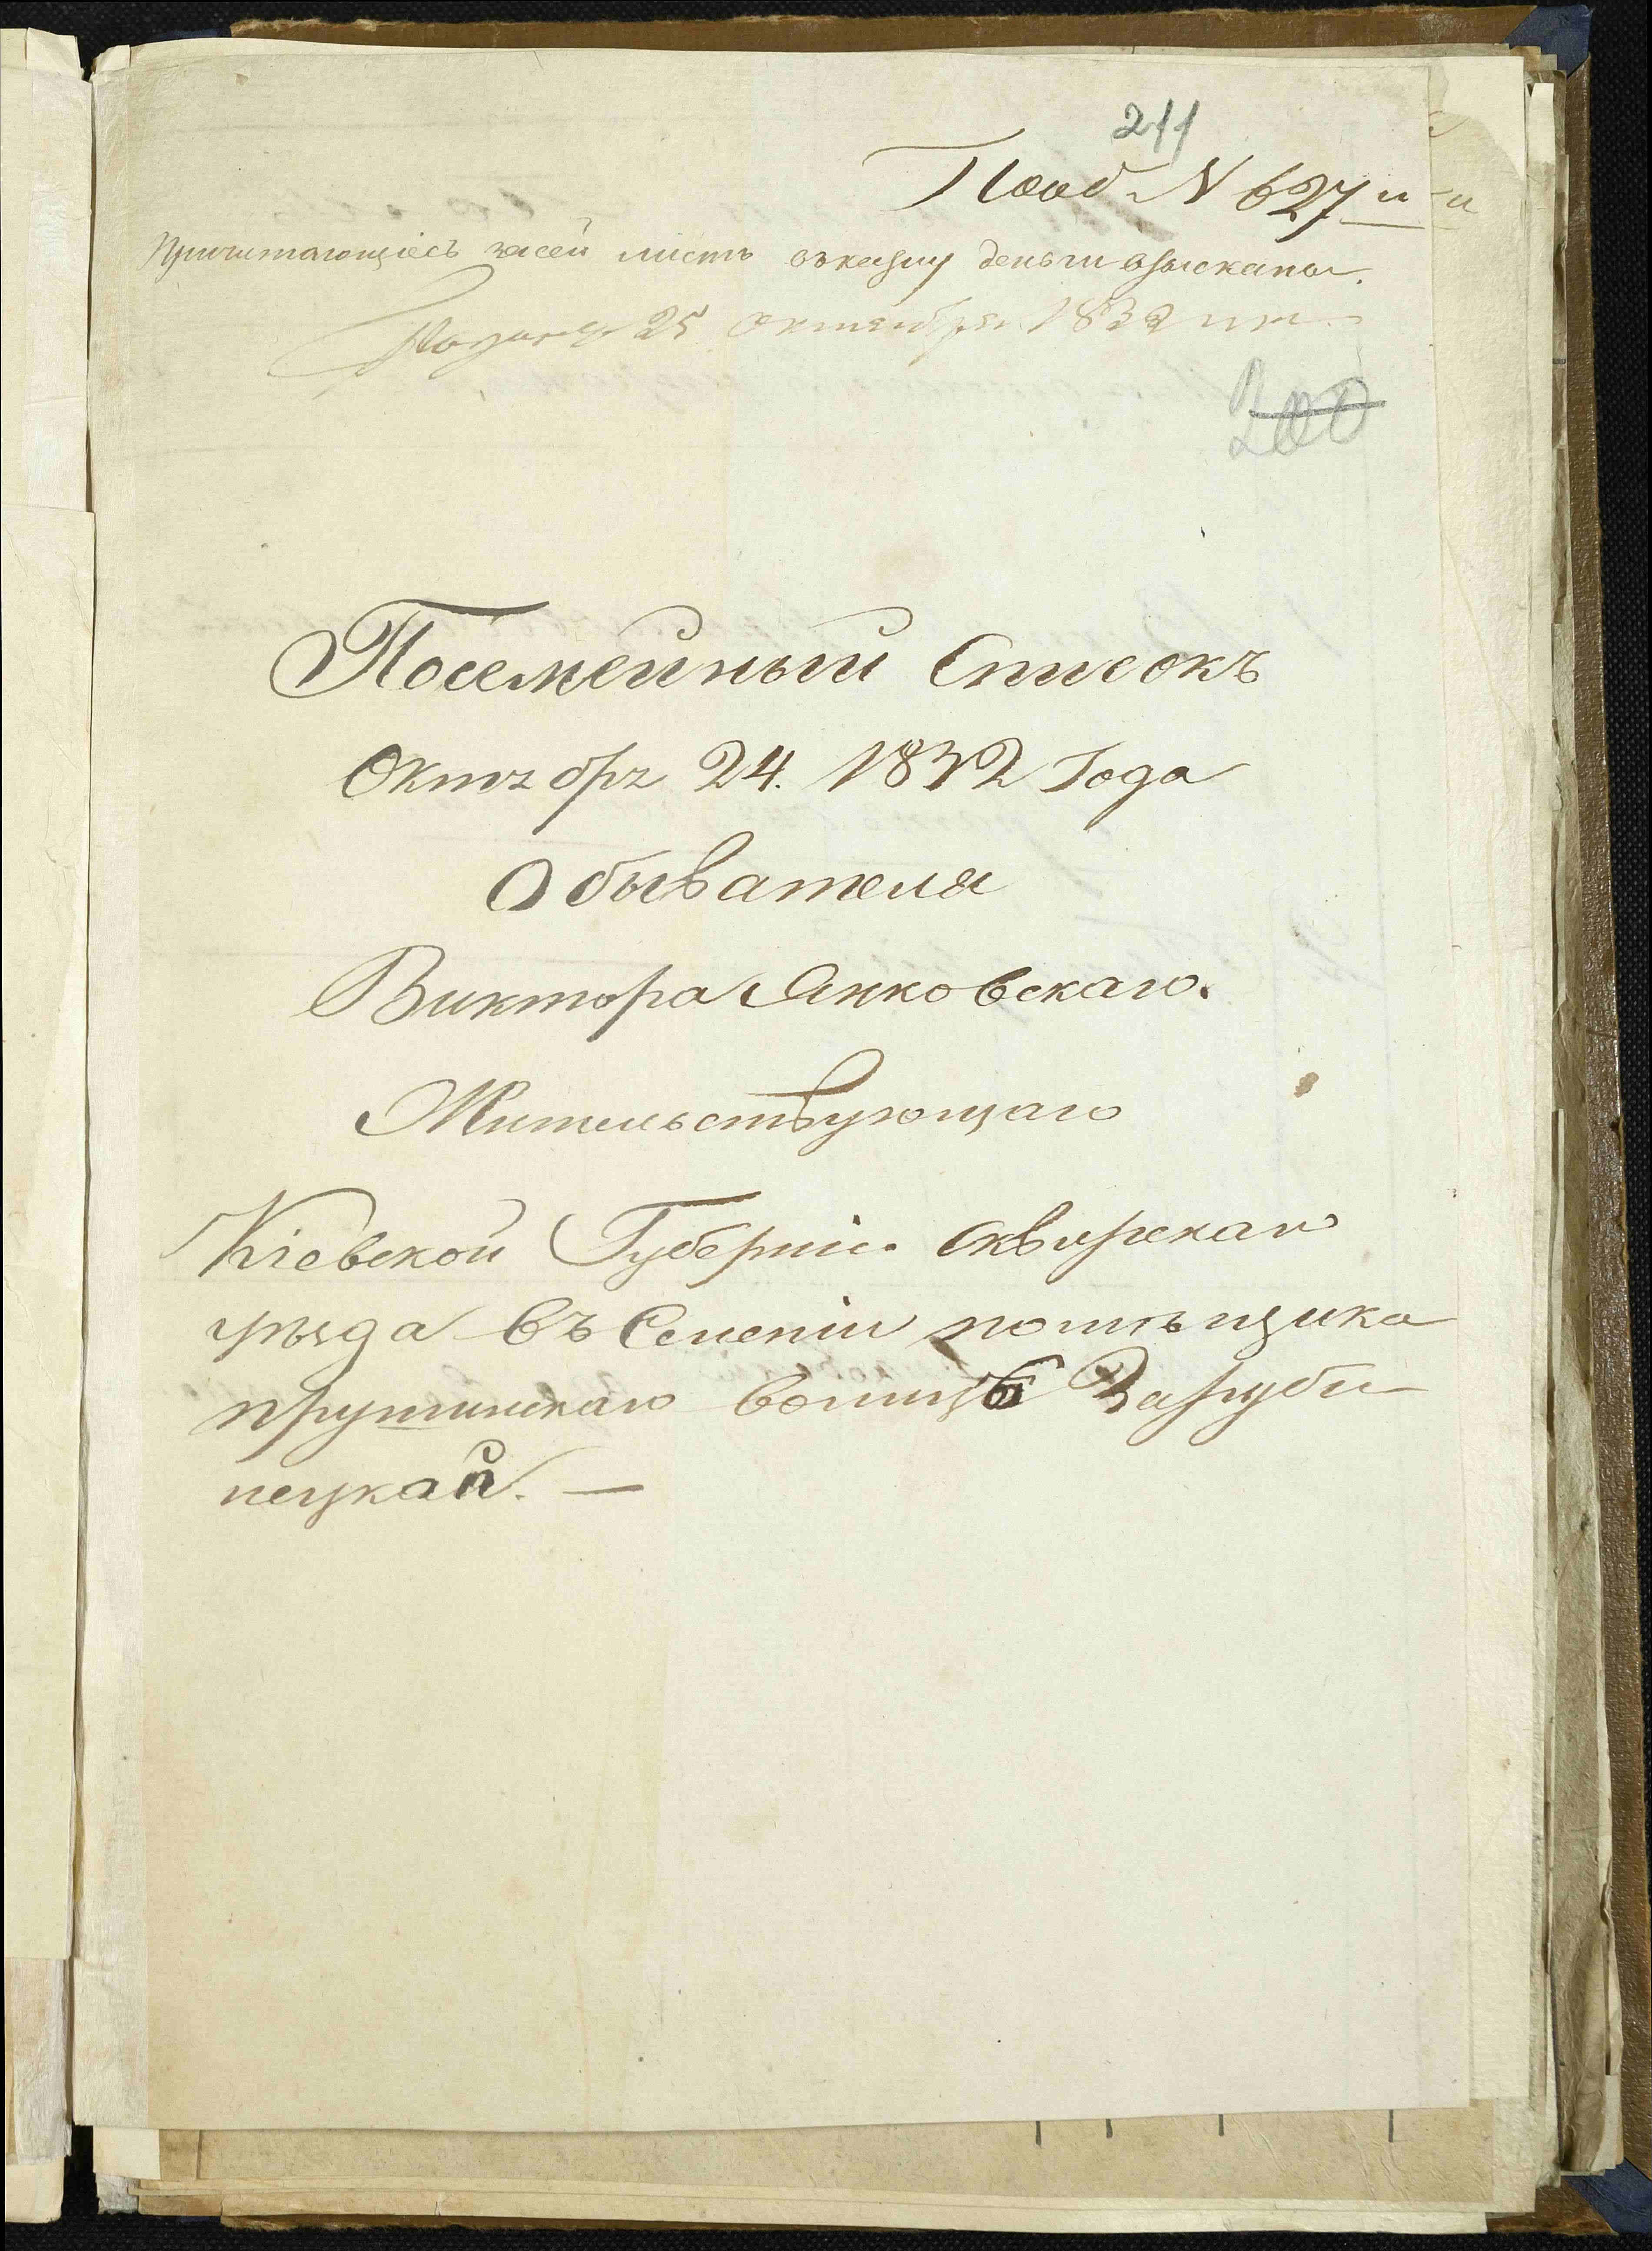 211
N 627
Причитающіесь засей листъ въказну деньги взысканы.
25 октября 1832
200
Посемейный Списокъ
Октября 24. 1832 Года
Обывателя
Виктора Янковскаго.
Жительствующаго
Кіевской Губерніи Сквирскаго
уѣзда въ Селеніи помѣщика
прушинскаго волице Заруби
нецкай. —